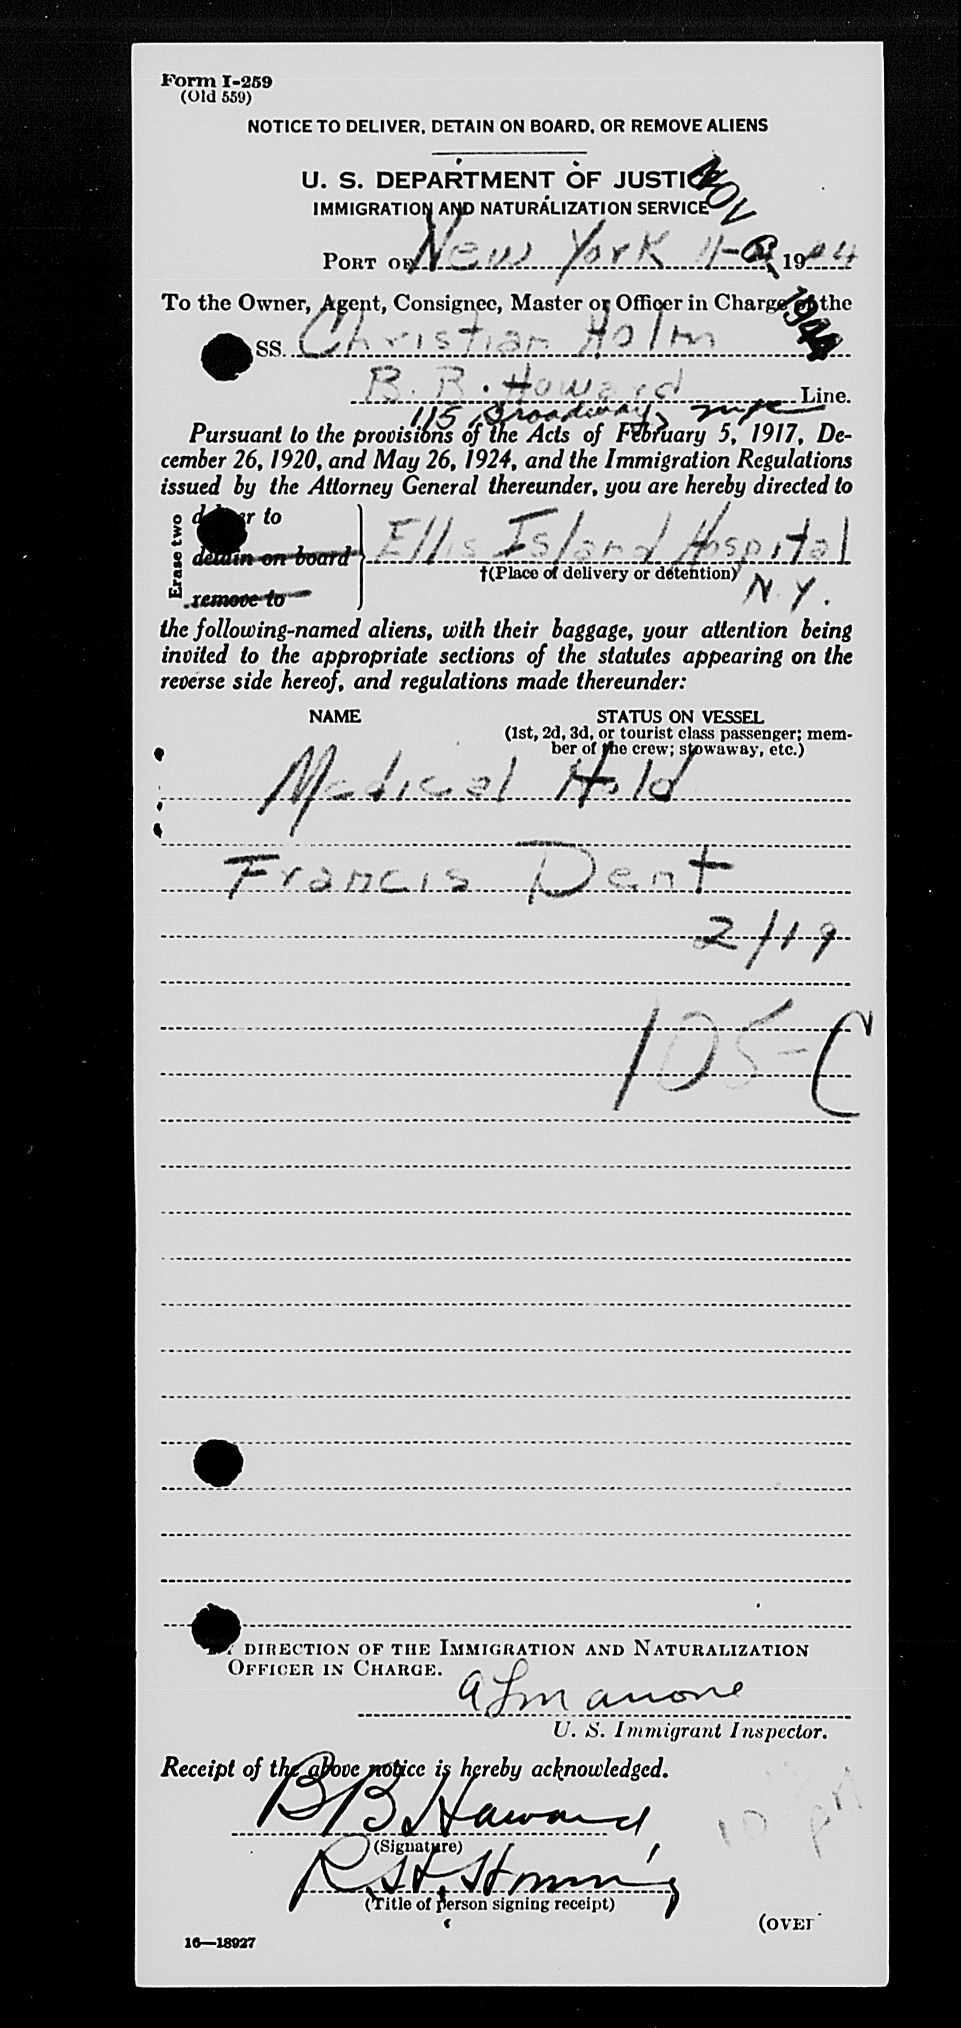 Form I-259
(Old 559)
NOTICE TO DELIVER, DETAIN ON BOARD, OR REMOVE ALIENS
U. S. DEPARTMENT OF JUSTICE
IMMIGRATION AND NATURALIZATION SERVICE
NOV 1944
PORT OF New York 11- 19 44
To the Owner, Agent, Consignee, Master or Officer in Charge of the
SS. Christian Holm
B. B. Howard Line.
115 Broadway, nyc
Pursuant to the provisions of the Acts of February 5, 1917, De-
cember 26, 1920, and May 26, 1924, and the Immigration Regulations
issued by the Attorney General thereunder, you are hereby directed to
Erase two
deliver to
detain on board
remove to
Ellis Island Hospital
†(Place of delivery or detention)
N.Y.
the following-named aliens, with their baggage, your attention being
invited to the appropriate sections of the statutes appearing on the
reverse side hereof, and regulations made thereunder:
NAME STATUS ON VESSEL
(1st, 2d, 3d, or tourist class passenger; mem-
ber of the crew; stowaway, etc.)
Medical Hold
Francis Dent
2/19
105-C
DIRECTION OF THE IMMIGRATION AND NATURALIZATION
OFFICER IN CHARGE.
U. S. Immigrant Inspector.
Receipt of the above notice is hereby acknowledged.
BB Howard
(Signature)
10 PM
(Title of person signing receipt)
(OVER
16—18927